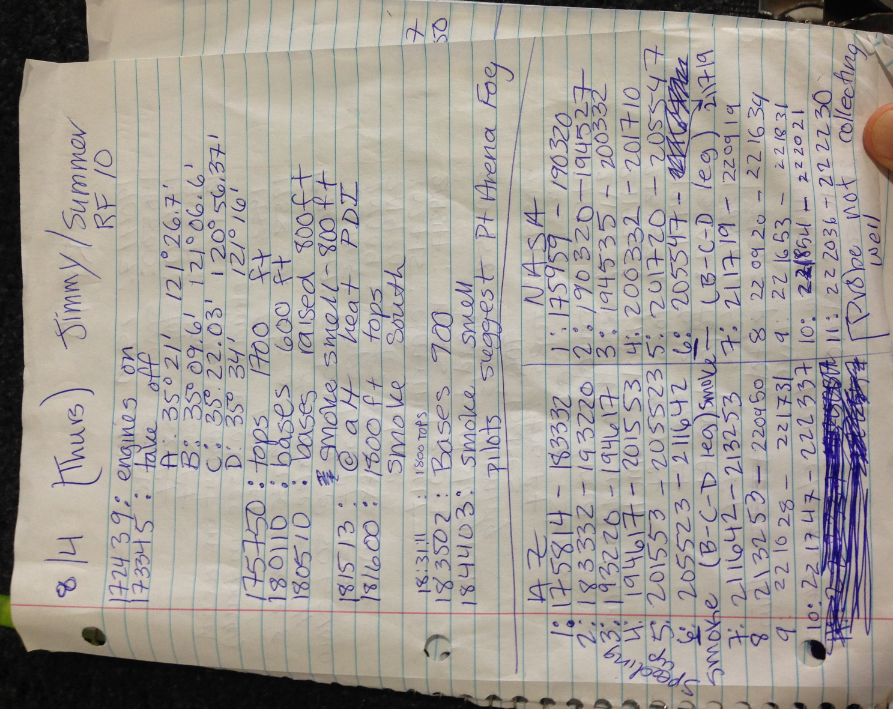 8/4 (Thurs) Jimmy/Summer
RF 10
172439: engines on
173345: take off
A: 35°21' 121°26.7'
B: 35°09.6' 121°06.6'
C: 35°22.03' 120°56.37'
D: 35° 34' 121°16'
175750: tops 1700 ft
180110: bases 600 ft
180510: bases raised 800ft
smoke smell - 800 ft
181513: @ alt heat PDI
181600: 1800ft tops
smoke south
183111: 1800 tops
183502: Bases 900
184403: smoke smell
pilots suggest Pt Arena Fog
7
50
AZ
1: 175814 - 183332
2: 183332 - 193220
3: 193220 - 194617
4: 194617 - 201553
speeding
5: 201553 - 205523
6: 205523 - 211642
smoke (B-C-D leg) smoke
7: 211642 - 213253
8 213253 - 220950
9 221028 - 221731
10: 221747 - 222337
NASA
1: 175959 - 190320
2: 190320 - 194527
3: 194535 - 200332
4: 200332 - 201710
5: 201720 - 205547
6: 205547 -
(B-C-D leg) 211719
7: 211719 - 220919
8 220920 - 221634
9 221653 - 221831
10: 221854 - 222021
11: 222036 - 222230
[Probe not collecting
well